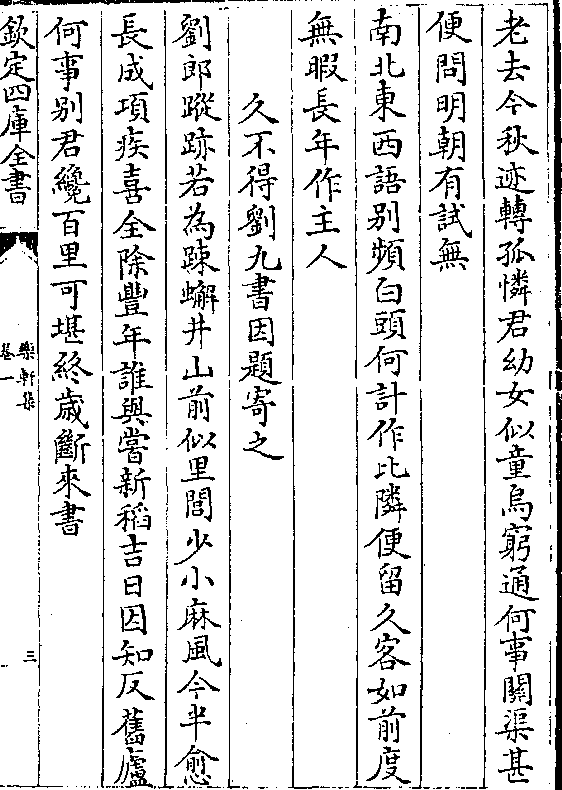 老去今秋迹轉孤憐君幼女似童烏窮通何事關渠甚
便問明朝有試無
南北東西語别頻白頭何計作比隣便留久客如前度
無暇長年作主人
久不得劉九書因題寄之
劉郎蹤跡若為踈蠏井山前似里閭少小麻風今半愈
長成項疾喜全除豐年誰與嘗新稻吉日因知反舊廬
何事别君纔百里可堪終歳斷來書
欽定四庫全書
樂軒集
卷一
三